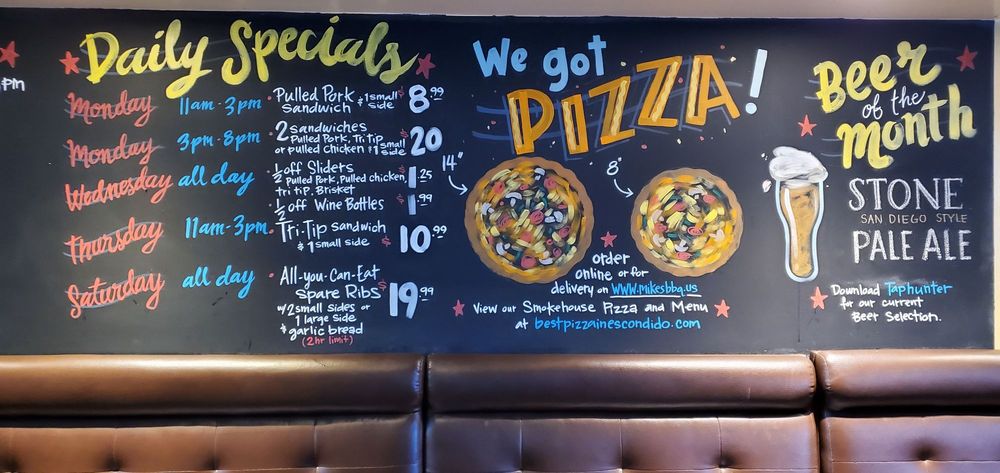 pm
Daily Specials
Monday 11am-3pm • Pulled Pork Sandwich & 1 small side $8.99
Monday 3pm-8pm • 2 sandwiches Pulled Pork, Tri Tip or pulled Chicken & 1 small side $20
Wednesday all day • ½ off Sliders Pulled Pork, Pulled chicken, tri tip, Brisket $1.25
• ½ off Wine Bottles $1.99
Thursday 11am-3pm • Tri-Tip sandwich & 1 small side $10.99
Saturday all day • All-you-Can-Eat Spare Ribs $19.99
w/2 small sides or
1 large side
& garlic bread
(2hr limit)
We got
PIZZA!
14"
8"
order
online or for
delivery on www.mikesbbq.us
View our Smokehouse Pizza and Menu
at bestpizzainescondido.com
Beer
of the
Month
STONE
SAN DIEGO STYLE
PALE ALE
Download Taphunter
for our current
Beer Selection.